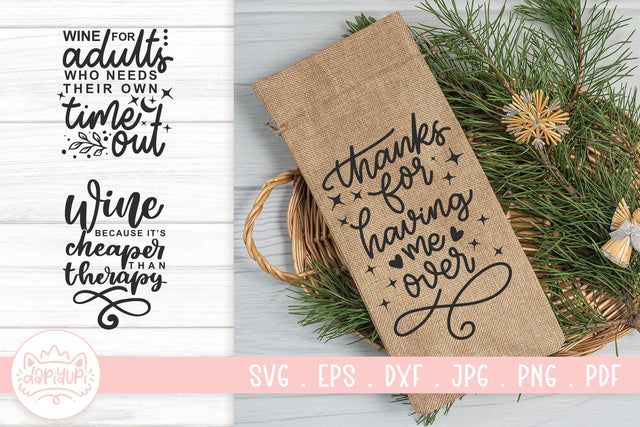 WINE FOR
adults
WHO NEEDS
THEIR OWN
time
out
Wine
BECAUSE IT'S
cheaper
THAN
therapy
thanks
for
having
me
over
dapiyupi
SVG . EPS . DXF . JPG . PNG . PDF